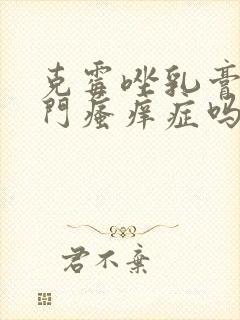 克霉唑乳膏
門瘙痒症吗
君不棄